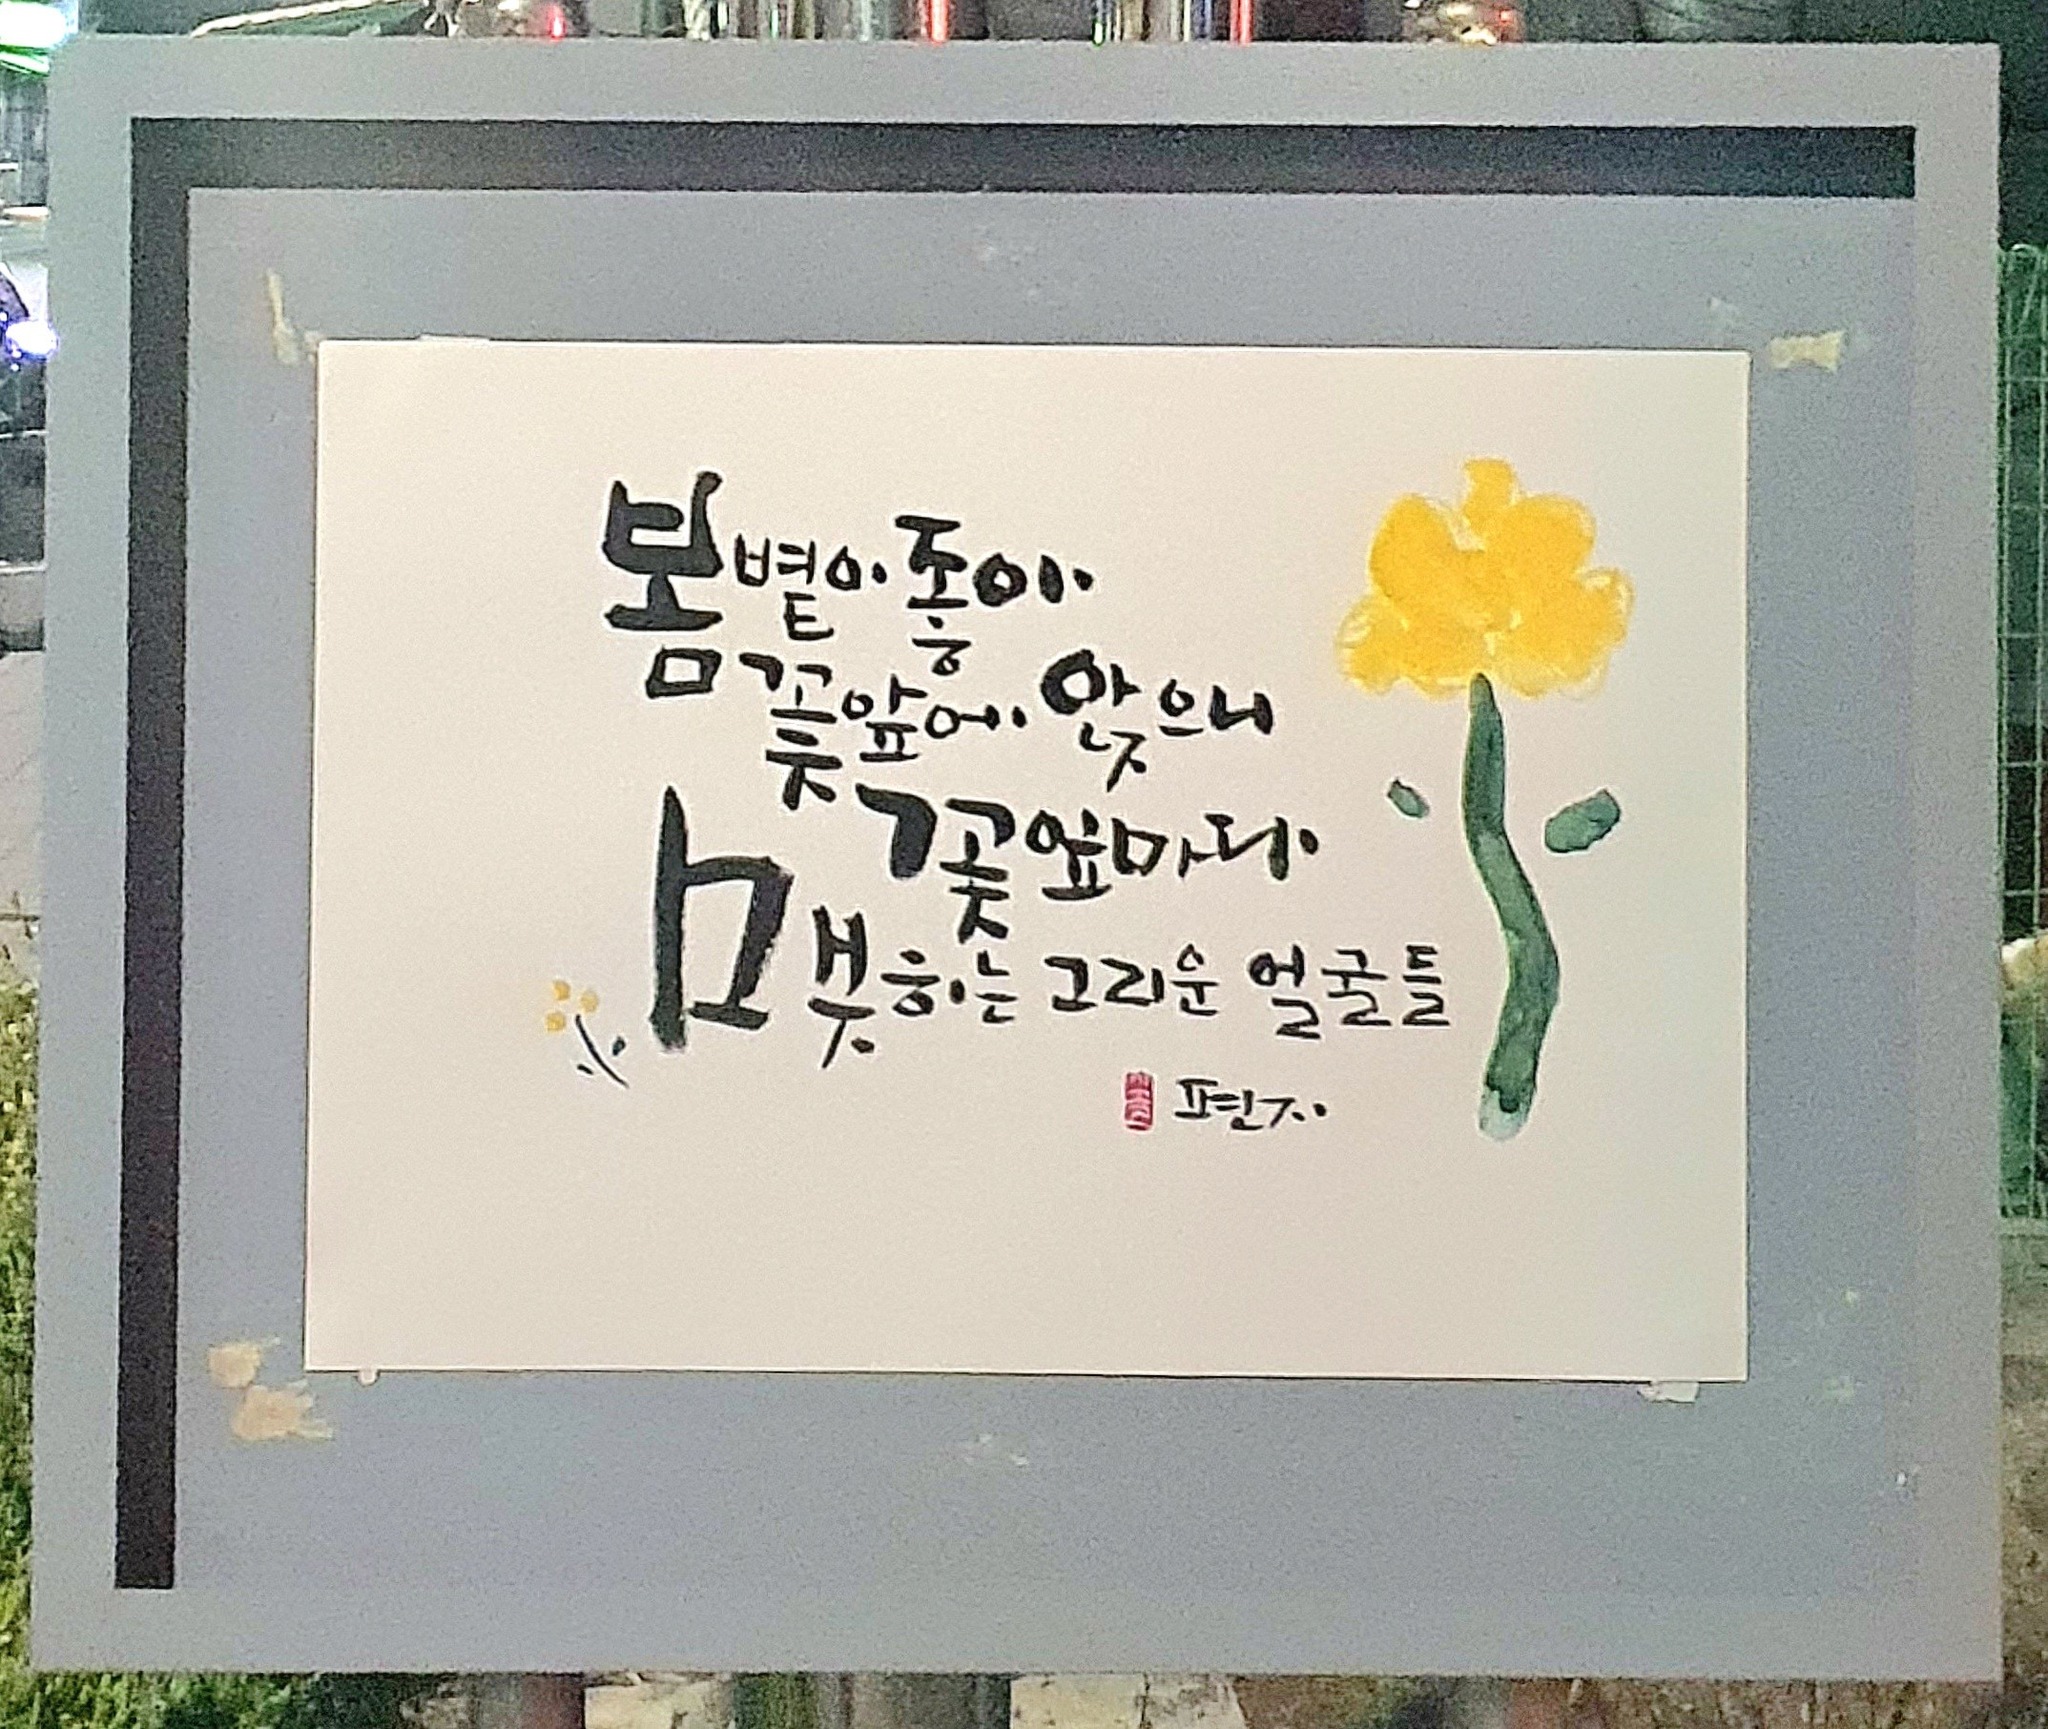 봄볕이 좋아
꽃앞에 앉으니
꽃잎마다
맺히는 그리운 얼굴들
편지